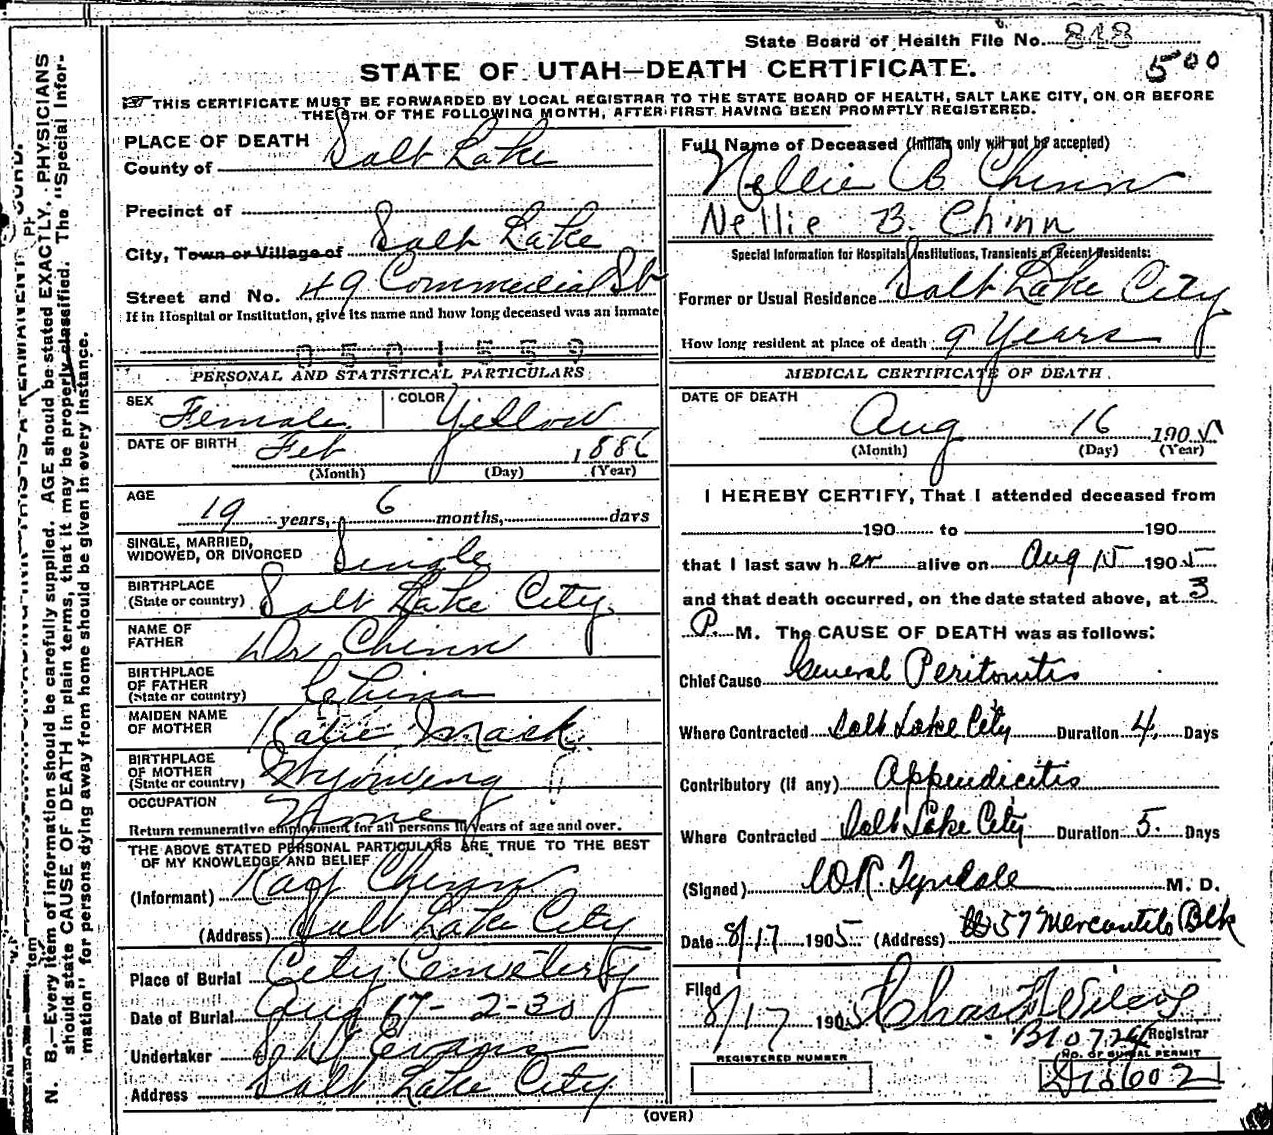 State Board of Health File No. 818
500
STATE OF UTAH—DEATH CERTIFICATE.
THIS CERTIFICATE MUST BE FORWARDED BY LOCAL REGISTRAR TO THE STATE BOARD OF HEALTH, SALT LAKE CITY, ON OR BEFORE
THE 5TH OF THE FOLLOWING MONTH, AFTER FIRST HAVING BEEN PROMPTLY REGISTERED.
PLACE OF DEATH
County of Salt Lake
Precinct of
City, Town or Village of Salt Lake
Street and No. 49 Commercial St
If in Hospital or Institution, give its name and how long deceased was an inmate
0501559
PERSONAL AND STATISTICAL PARTICULARS
SEX Female COLOR Yellow
DATE OF BIRTH Feb 1886
(Month) (Day) (Year)
AGE 19 years, 6 months, days
SINGLE, MARRIED,
WIDOWED, OR DIVORCED Single
BIRTHPLACE
(State or country) Salt Lake City
NAME OF
FATHER Dr Chinn
BIRTHPLACE
OF FATHER
(State or country) China
MAIDEN NAME
OF MOTHER Katie Mack
BIRTHPLACE
OF MOTHER
(State or country) Wyoming
OCCUPATION None
Return remunerative employment for all persons 10 years of age and over.
THE ABOVE STATED PERSONAL PARTICULARS ARE TRUE TO THE BEST
OF MY KNOWLEDGE AND BELIEF
(Informant) Chinn
(Address) Salt Lake City
Place of Burial City Cemetery
Date of Burial Aug 17 - 2-30
Undertaker Evans
Address Salt Lake City
Full Name of Deceased (Initials only will not be accepted)
Nellie B Chinn
Nellie B. Chinn
Special Information for Hospitals, Institutions, Transients or Recent Residents:
Former or Usual Residence Salt Lake City
How long resident at place of death 9 Years
MEDICAL CERTIFICATE OF DEATH
DATE OF DEATH
Aug 16 1905
(Month) (Day) (Year)
I HEREBY CERTIFY, That I attended deceased from
190 to 190
that I last saw her alive on Aug 15 1905
and that death occurred, on the date stated above, at 3
P. M. The CAUSE OF DEATH was as follows:
Chief Cause General Peritonitis
Where Contracted Salt Lake City Duration 4 Days
Contributory (if any) Appendicitis
Where Contracted Salt Lake City Duration 5 Days
(Signed) W.R. Tyndale M. D.
Date 8/17 1905 (Address) 57 Mercantile Blk
Filed
8/17 1905 Chas
B10724 Registrar
REGISTERED NUMBER
No. OF BURIAL PERMIT
D18602
(OVER)
N. B.—Every item of information should be carefully supplied. AGE should be stated EXACTLY. PHYSICIANS
should state CAUSE OF DEATH in plain terms, that it may be properly classified. The "Special Infor-
mation" for persons dying away from home should be given in every instance.